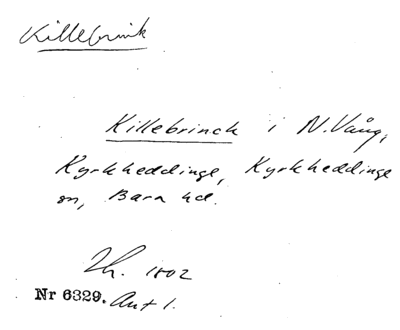 Killebrink
Killebrinck i N. Vång,
Kyrkheddinge, Kyrkheddinge
sn, Bara hd.
Lh. 1802
Nr 6329. Akt 1.